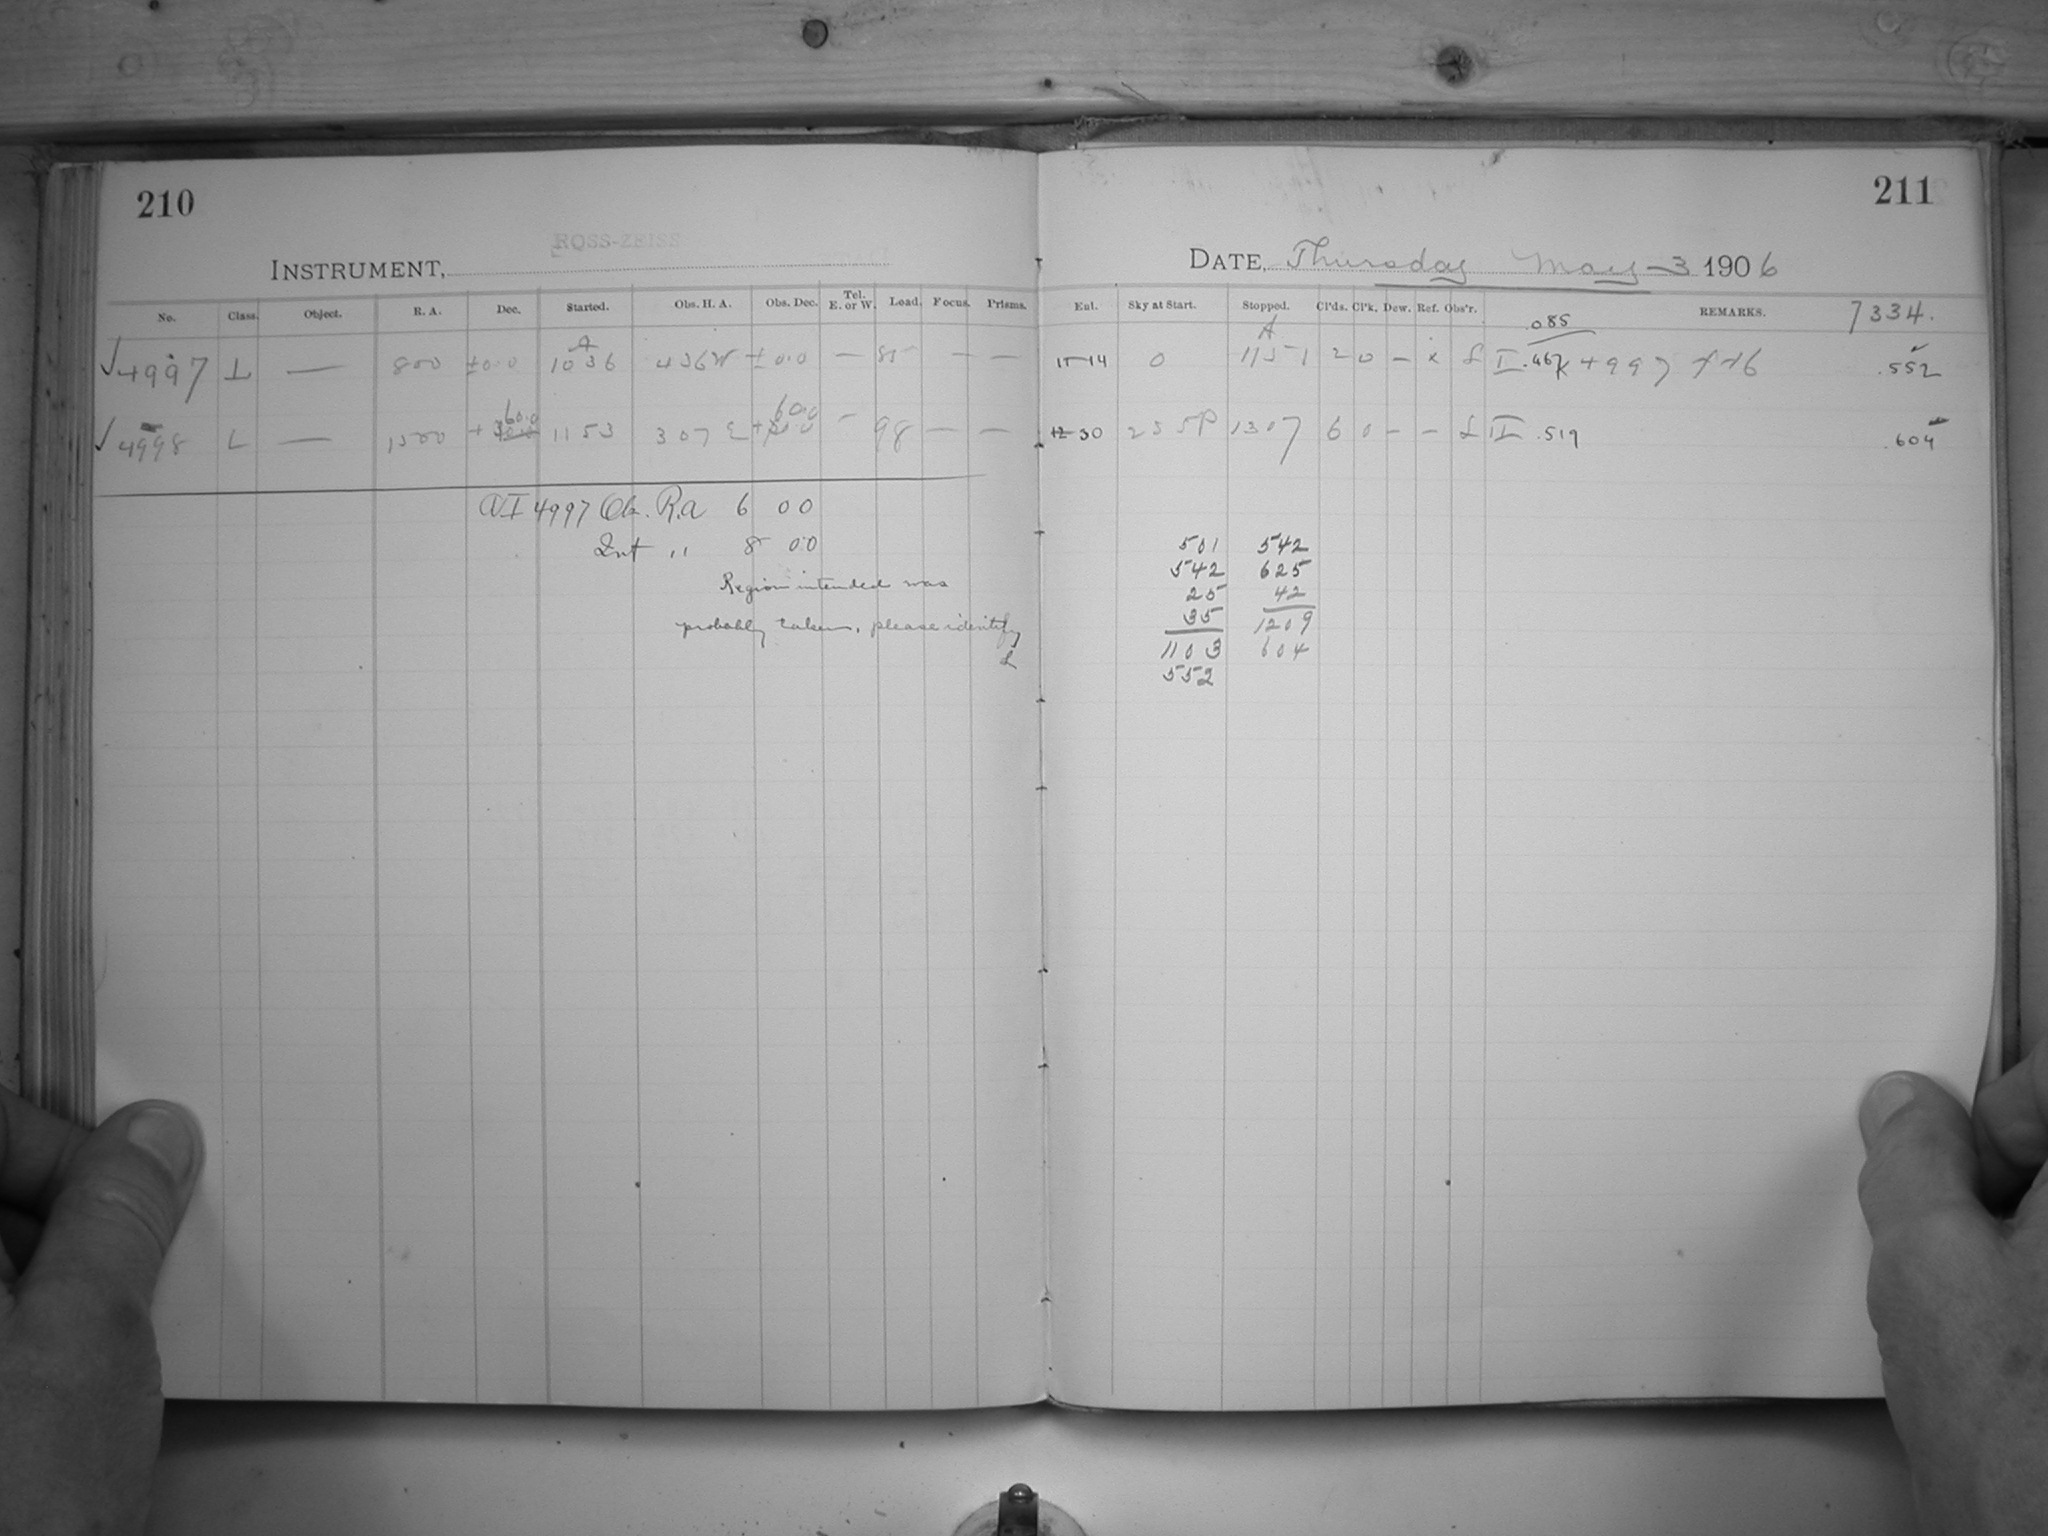 210
ROSS-ZEISS
INSTRUMENT,
No. Class. Object. R. A. Dec. Started. Obs. H. A. Obs. Dec. Tel. E. or W. Load. Focus. Prisms.
√ 4997 L — 800 ±0.0 A 1036 436 W ±0.0 — 85 — —
60.0 60.0
√ 4998 L — 1500 + 1153 307 E + — 98 — —
AI 4997 Obs. R.A 6 00
Int " 8 00
Region intended was
probably taken, please identify
L
211
DATE, Thursday May 3 1906
Ent. Sky at Start. Stopped. Cl'ds. Cl'k. Dew. Ref. Obs'r. REMARKS. 7334.
A .085
15 14 0 1151 2 0 — x L I .467 4997 .552
12 30 23 5P 1307 6 0 — — L II .519 .604
501 542
542 625
25 42
35 1209
1103 604
552